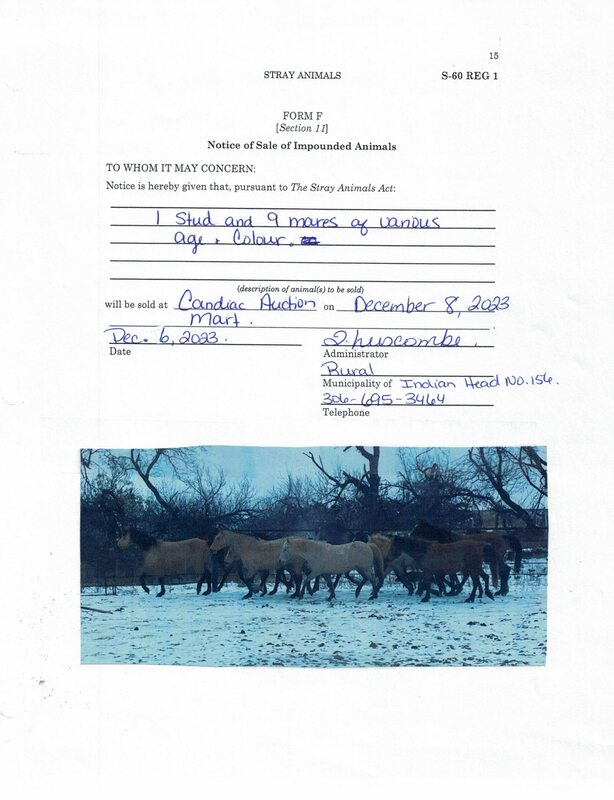 15
STRAY ANIMALS S-60 REG 1
FORM F
[Section 11]
Notice of Sale of Impounded Animals
TO WHOM IT MAY CONCERN:
Notice is hereby given that, pursuant to The Stray Animals Act:
1 Stud and 9 mares of various
age + Colour.
(description of animal(s) to be sold)
will be sold at Candiac Auction on December 8, 2023
Mart.
Dec. 6, 2023. D. Luscombe.
Date Administrator
Rural
Municipality of Indian Head NO. 156.
306-695-3464
Telephone